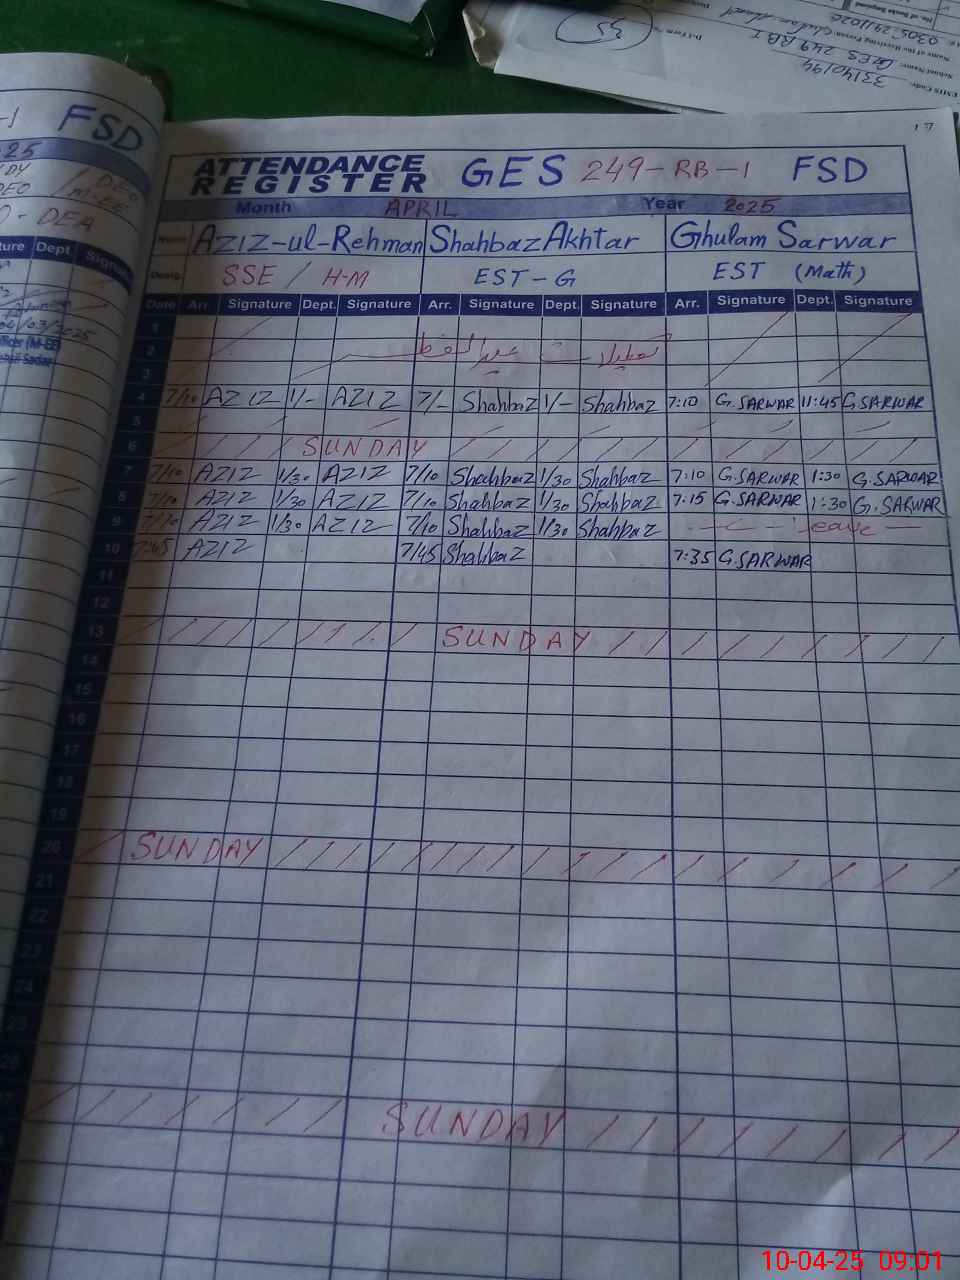 33140194
GES 249 RB I
0305-2911026
35
-1 FSD
ATTENDANCE
REGISTER
GES 249-RB-1 FSD
Month APRIL Year 2025
Name Aziz-ul-Rehman Shahbaz Akhtar Ghulam Sarwar
Desig. SSE / H-M EST-G EST (Math)
Date Arr. Signature Dept. Signature Arr. Signature Dept. Signature Arr. Signature Dept. Signature
1
2 تعطیلات عید الفطر
3
4 7/10 AZIZ 1/- AZIZ 7/- Shahbaz 1/- Shahbaz 7:10 G.SARWAR 11:45 G.SARWAR
5
6 SUNDAY
7 7/10 AZIZ 1/30 AZIZ 7/10 Shahbaz 1/30 Shahbaz 7:10 G.SARWAR 1:30 G.SARWAR
8 7/10 AZIZ 1/30 AZIZ 7/10 Shahbaz 1/30 Shahbaz 7:15 G.SARWAR 1:30 G.SARWAR
9 7/10 AZIZ 1/30 AZIZ 7/10 Shahbaz 1/30 Shahbaz leave
10 7:45 AZIZ 7/45 Shahbaz 7:35 G.SARWAR
11
12
13 SUNDAY
14
15
16
17
18
19
20 SUNDAY
21
22
23
24
25
26
SUNDAY
10-04-25 09:01